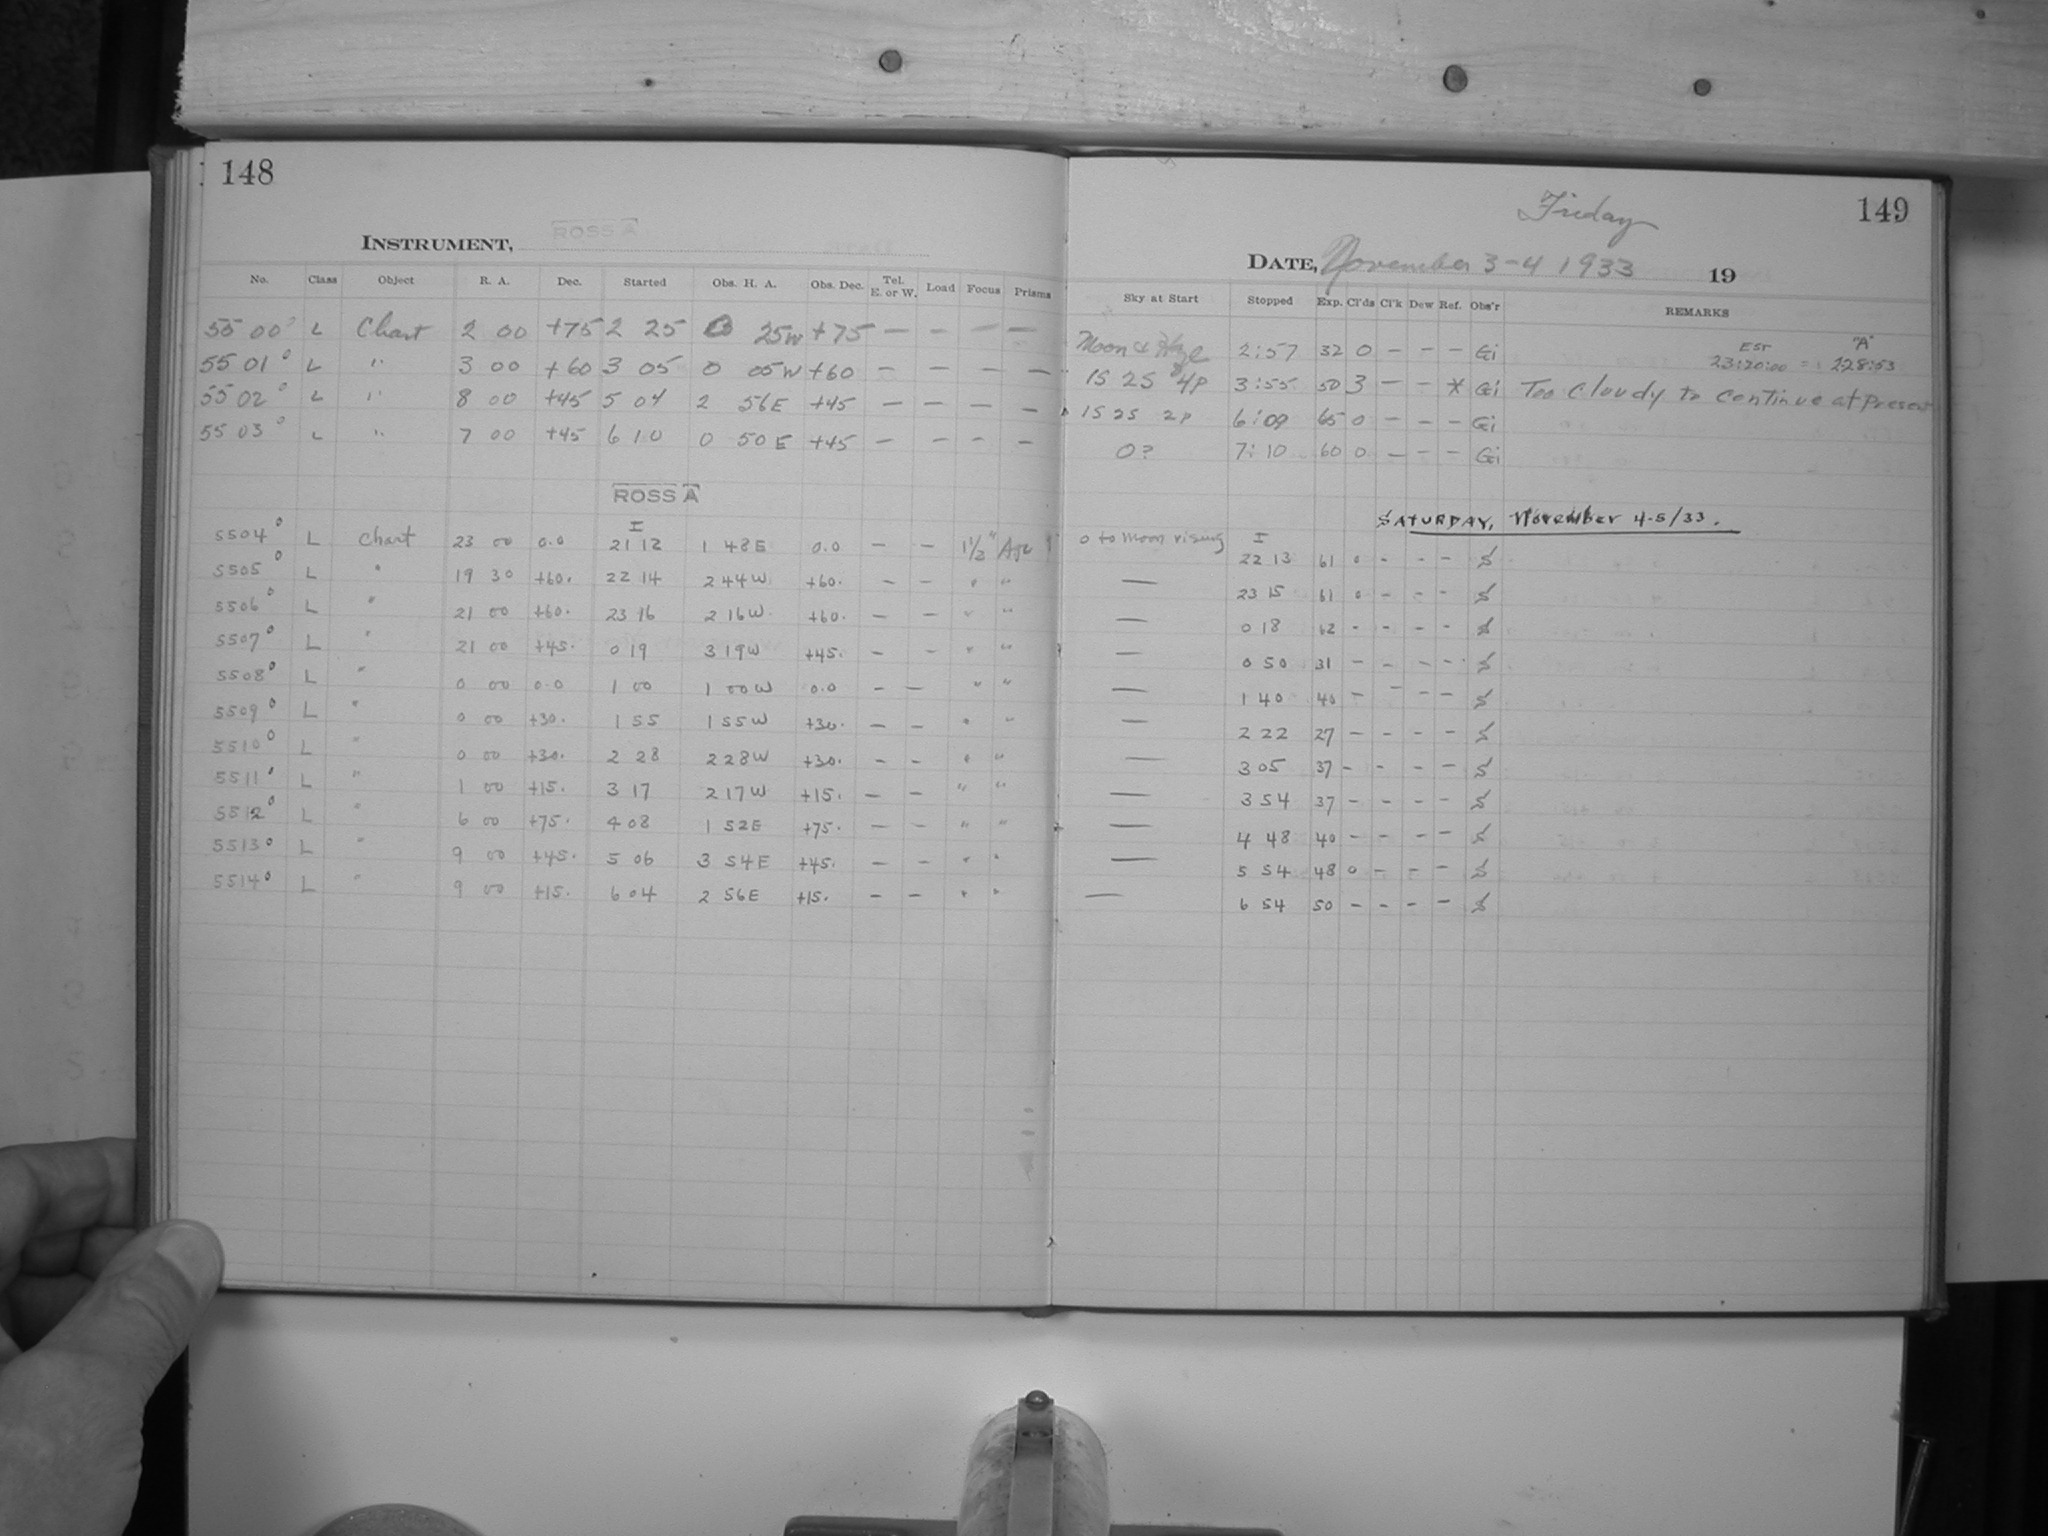 148
INSTRUMENT, ROSS A
No. Class Object R. A. Dec. Started Obs. H. A. Obs. Dec. Tel. E. or W. Load Focus Prisms
5500° L Chart 2 00 +75 2 25 0 25W +75 — — — —
5501° L " 3 00 +60 3 05 0 05W +60 — — — —
5502° L " 8 00 +45 5 04 2 56E +45 — — — —
5503° L " 7 00 +45 6 10 0 50E +45 — — — —
ROSS A
I
5504° L Chart 23 00 0.0 21 12 1 48E 0.0 — — 1½"
5505° L " 19 30 +60. 22 14 2 44W +60. — — " "
5506° L " 21 00 +60. 23 16 2 16W +60. — — " "
5507° L " 21 00 +45. 0 19 3 19W +45. — — " "
5508° L " 0 00 0.0 1 00 1 00W 0.0 — — " "
5509° L " 0 00 +30. 1 55 1 55W +30. — — " "
5510° L " 0 00 +30. 2 28 2 28W +30. — — " "
5511° L " 1 00 +15. 3 17 2 17W +15. — — " "
5512° L " 6 00 +75. 4 08 1 52E +75. — — " "
5513° L " 9 00 +45. 5 06 3 54E +45. — — " "
5514° L " 9 00 +15. 6 04 2 56E +15. — — " "
149
Friday
DATE, November 3-4 1933 19
Sky at Start Stopped Exp. Cl'ds Cl'k Dew Ref. Obs'r REMARKS
Moon & Haze 2:57 32 0 — — — Gi EST 23:20:00 = "A" 2:28:53
1S 2S 4P 3:55 50 3 — — * Gi Too cloudy to continue at present
1S 2S 2P 6:09 65 0 — — — Gi
0? 7:10 60 0 — — — Gi
SATURDAY, November 4-5/33.
I
0 to moon rising 22 13 61 0 - - - S
— 23 15 61 0 - - - S
— 0 18 62 - - - - S
— 0 50 31 - - - - S
— 1 40 40 - - - - S
— 2 22 27 - - - - S
— 3 05 37 - - - - S
— 3 54 37 - - - - S
— 4 48 40 - - - - S
— 5 54 48 0 - - - S
— 6 54 50 - - - - S